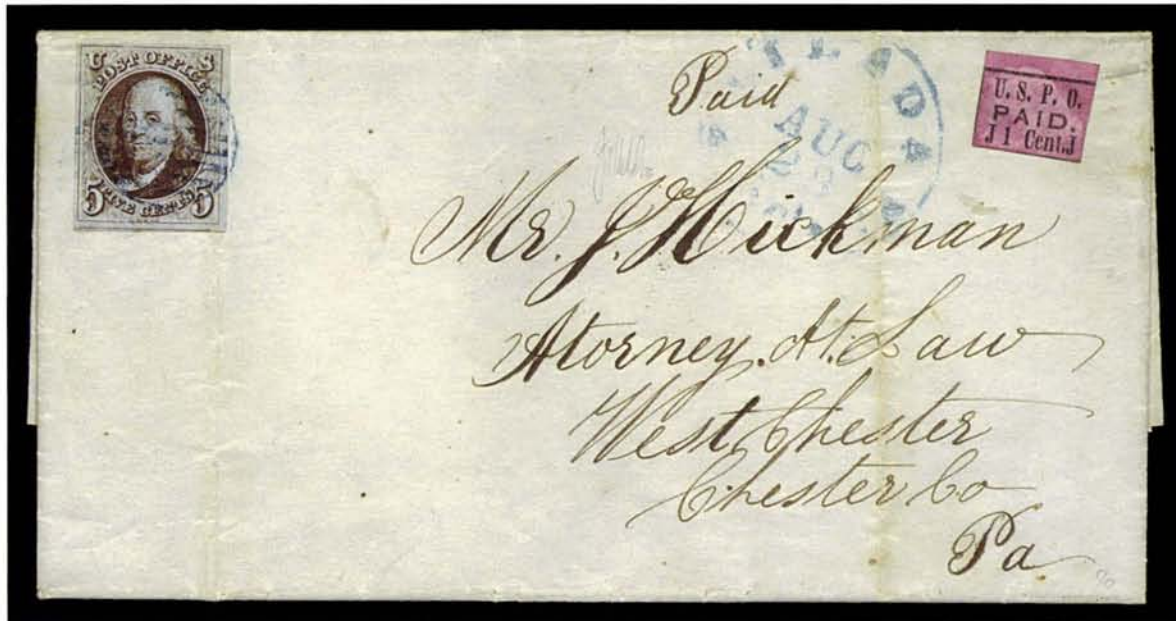 U S
POST OFFICE
FIVE CENTS
5 5
Paid
AUG
U. S. P. O.
PAID.
J 1 Cent.J
Mr. J. Hickman
Attorney. At. Law
West Chester
Chester Co
Pa